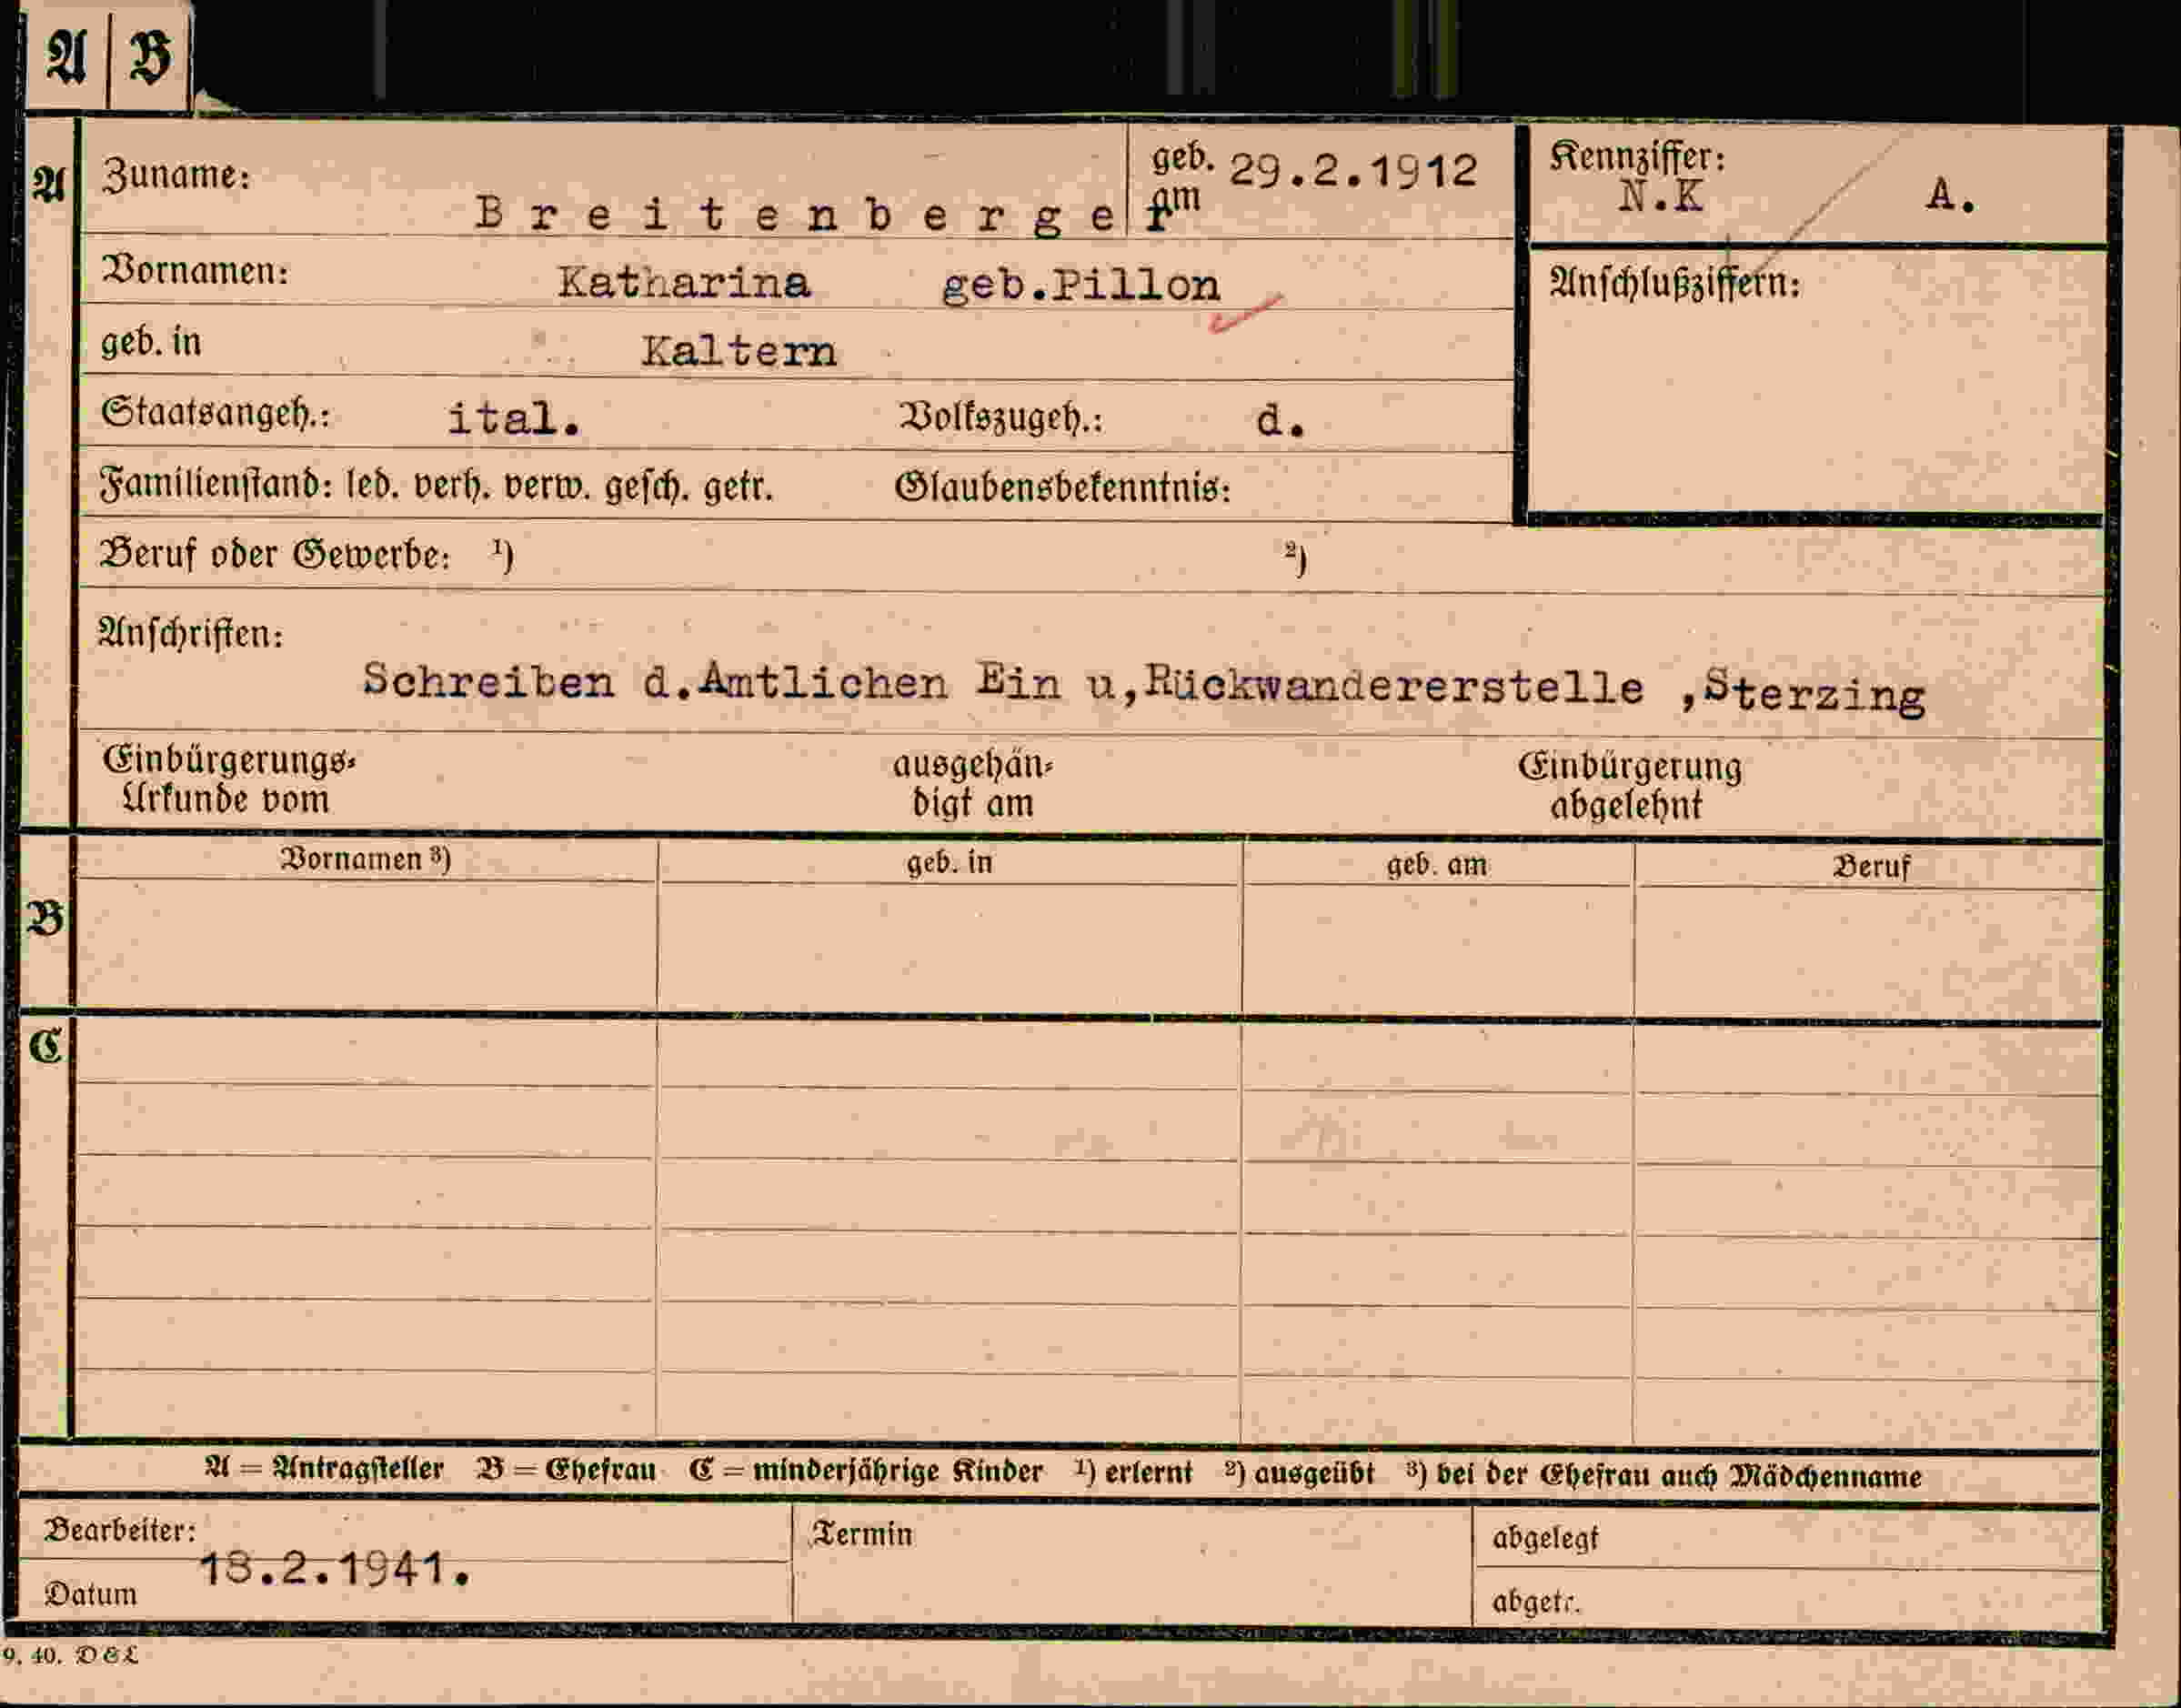 A | B
A Zuname: Breitenberger geb. am 29.2.1912 Kennziffer: N.K A.
Vornamen: Katharina geb.Pillon Anschlußziffern:
geb. in Kaltern
Staatsangeh.: ital. Volkszugeh.: d.
Familienstand: led. verh. verw. gesch. getr. Glaubensbekenntnis:
Beruf oder Gewerbe: 1) 2)
Anschriften:
Schreiben d.Amtlichen Ein u,Rückwandererstelle ,Sterzing
Einbürgerungs- ausgehän- Einbürgerung
Urkunde vom digt am abgelehnt
Vornamen 3) geb. in geb. am Beruf
B
C
A = Antragsteller B = Ehefrau C = minderjährige Kinder 1) erlernt 2) ausgeübt 3) bei der Ehefrau auch Mädchenname
Bearbeiter: Termin abgelegt
18.2.1941.
Datum abgetr.
9. 40. DEL